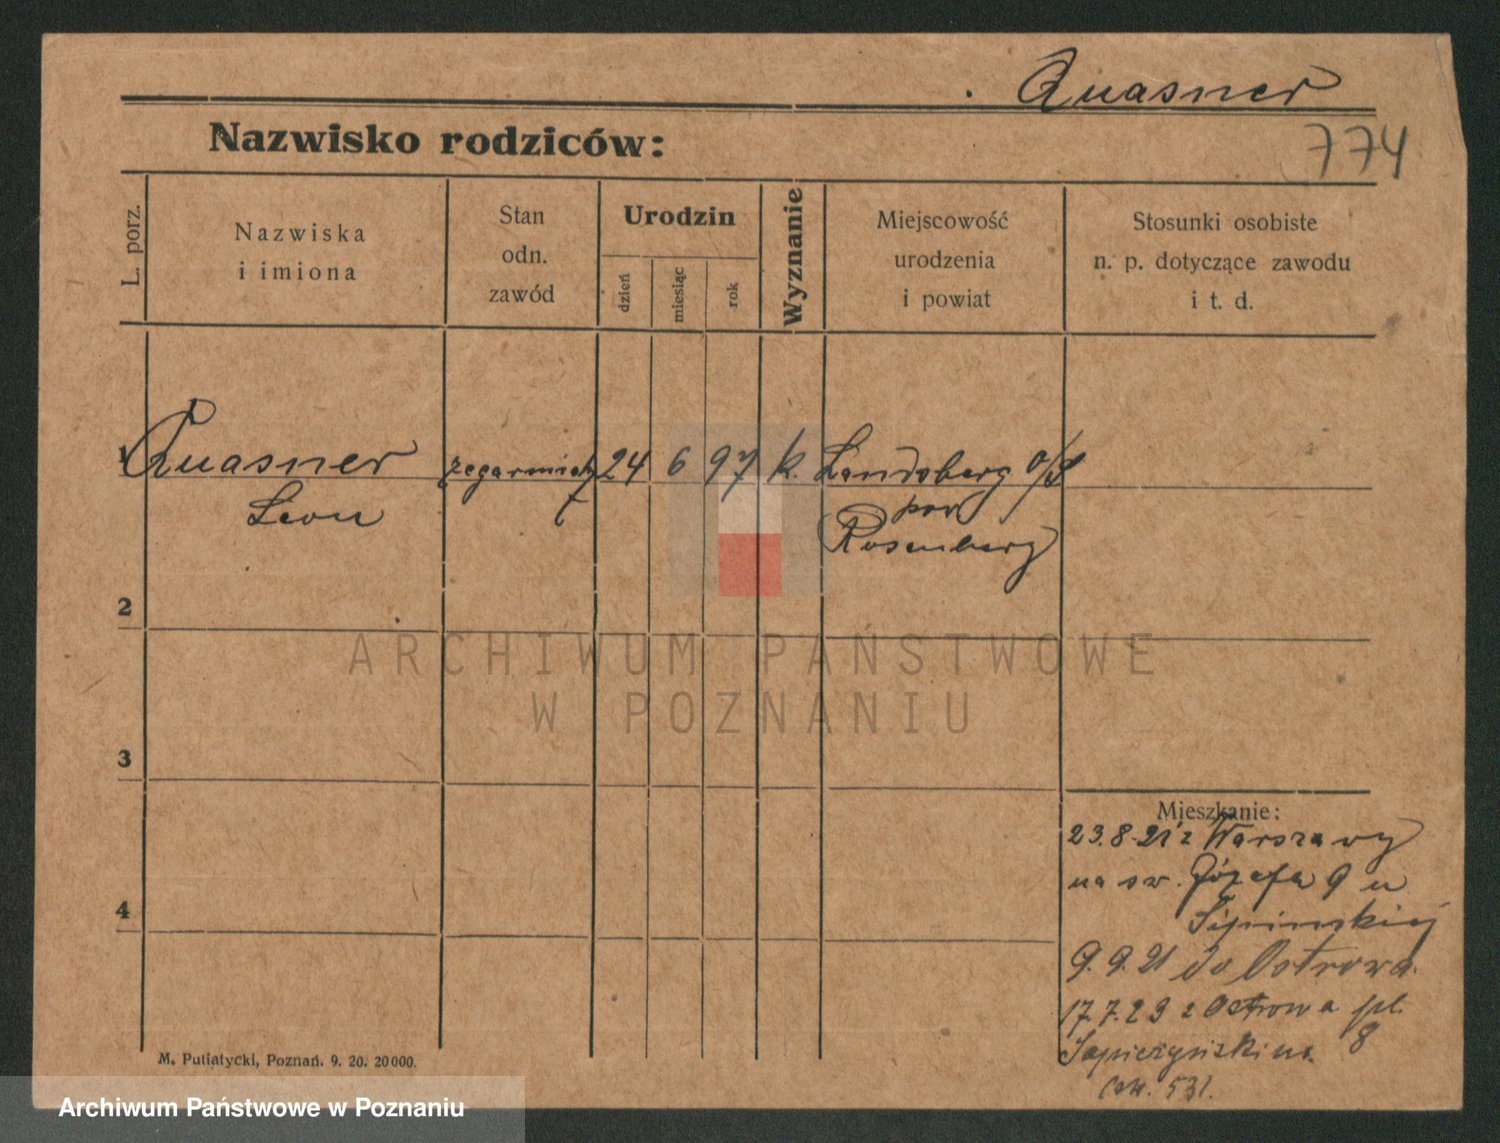 Quasner
Nazwisko rodziców:
774
L. porz.
Nazwiska
i imiona
Stan
odn.
zawód
Urodzin
dzień
miesiąc
rok
Wyznanie
Miejscowość
urodzenia
i powiat
Stosunki osobiste
n. p. dotyczące zawodu
i t. d.
1 Quasner zegarmistrz 24 6 97 k. Landsberg O/S
Leon pow
Rosenberg
2
3
4
ARCHIWUM PAŃSTWOWE
W POZNANIU
Mieszkanie:
23.8.21 z Warszawy
na św. Józefa 9 u
9.9.21 do Ostrowa.
17.7.23 z Ostrowa pl.
8
531.
M. Putiatycki, Poznań. 9. 20. 20000.
Archiwum Państwowe w Poznaniu